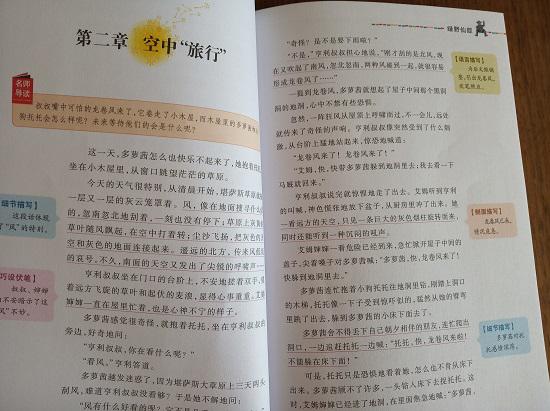 第二章 空中“旅行”
名师
导读
叔叔嘴中可怕的龙卷风来了，它卷走了小木屋，而木屋里的多萝茜和小
狗托托会怎么样呢？未来等待他们的会是什么呢？
这一天，多萝茜怎么也快乐不起来了，她抱着托托
坐在小木屋里，从窗口眺望茫茫的草原。
今天的天气很特别，从清晨开始，堪萨斯草原就
一层又一层的灰云笼罩着。风，像在地面搜寻什么
的，忽南忽北地刮着，一刻也没有停下；草原上灰黄的
草叶随风飘起，在空中打着转；尘沙飞扬，把灰色的天
空和灰色的地面连接起来。遥远的北方，传来风低沉
的哀号。不久，南面的天空又发出了尖锐的呼啸声
亨利叔叔坐在门口的台阶上，不安地搓着双手，
着远方飞旋的草叶和起伏的麦浪，显得心事重重。艾
婶婶一直在屋里忙着，也是心神不宁的样子。
多萝茜感觉很奇怪，就抱着托托，坐在亨利叔叔
旁边，好奇地问：
“亨利叔叔，你在看什么呢？”
“看风。”亨利答道。
多萝茜越发迷惑了，因为堪萨斯大草原上三天两头
刮风，难道亨利叔叔没看够？于是她不解地问：
“风有什么好看的呢？
细节描写
这段话体现
了“风”的特别。
巧设伏笔
叔叔、婶婶
的不安暗示了这
“风”不妙。
绿野仙踪
“奇怪？是不是要下雨啦？”
“不是，”亨利叔叔担心地说，“刚才刮的是北风，现
在又吹起了南风，忽北忽南，两种风碰到一起，就很容易
形成龙卷风了……”
一提到龙卷风，多萝茜就想起了屋子中间那个黑洞
洞的地洞，心中不禁有些恐惧。
忽然，一阵狂风从屋顶上呼啸而过，不一会儿，远处
就传来了奇怪的声响。亨利叔叔像突然受到了什么刺
激，从台阶上猛地站起来，惊恐地喊道：
“龙卷风来了！龙卷风来了！”
“艾姆，快，快带多萝茜躲到地洞里去；我去看一下
马厩就回来。”
亨利叔叔说完就惊惶地走了出去。艾姆听到亨利
的叫喊，神色慌张地放下盘子，从厨房里冲了出来。她
看一看远方的天空，只见一条巨大的灰色烟柱旋转而来，
同时还能听到一种沉闷的吼声。
艾姆婶婶一看危险已经到来，急忙掀开屋子中间的
盖子，尖着嗓子对多萝茜喊道：“多萝茜，快，龙卷风来了！
快躲到地洞里去。”
多萝茜连忙抱着小狗托托往地洞里钻，刚踏上洞口
的木梯，托托像一下子受到惊吓似的，猛然从她的臂弯
里跳了出去，躲到多萝茜的小床下面去了。
多萝茜舍不得丢下自己朝夕相伴的朋友，连忙爬出
洞口，一边追赶托托一边喊：“托托，快，龙卷风来啦！
不能躲在床下面！”
可是，托托只是恐惧地看着她，怎么也不肯从床下
出来。多萝茜顾不了许多，一头钻入床下去捉托托。这
时，艾姆婶婶已经进了地洞，在里面焦急地喊：“多萝
语言描写
侧面描写
龙卷风已来，
情况危急。
细节描写
多萝茜对托
托感情深厚。